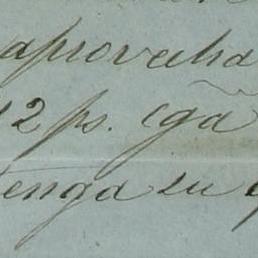 aprovecha
12 ps. cga
enga su